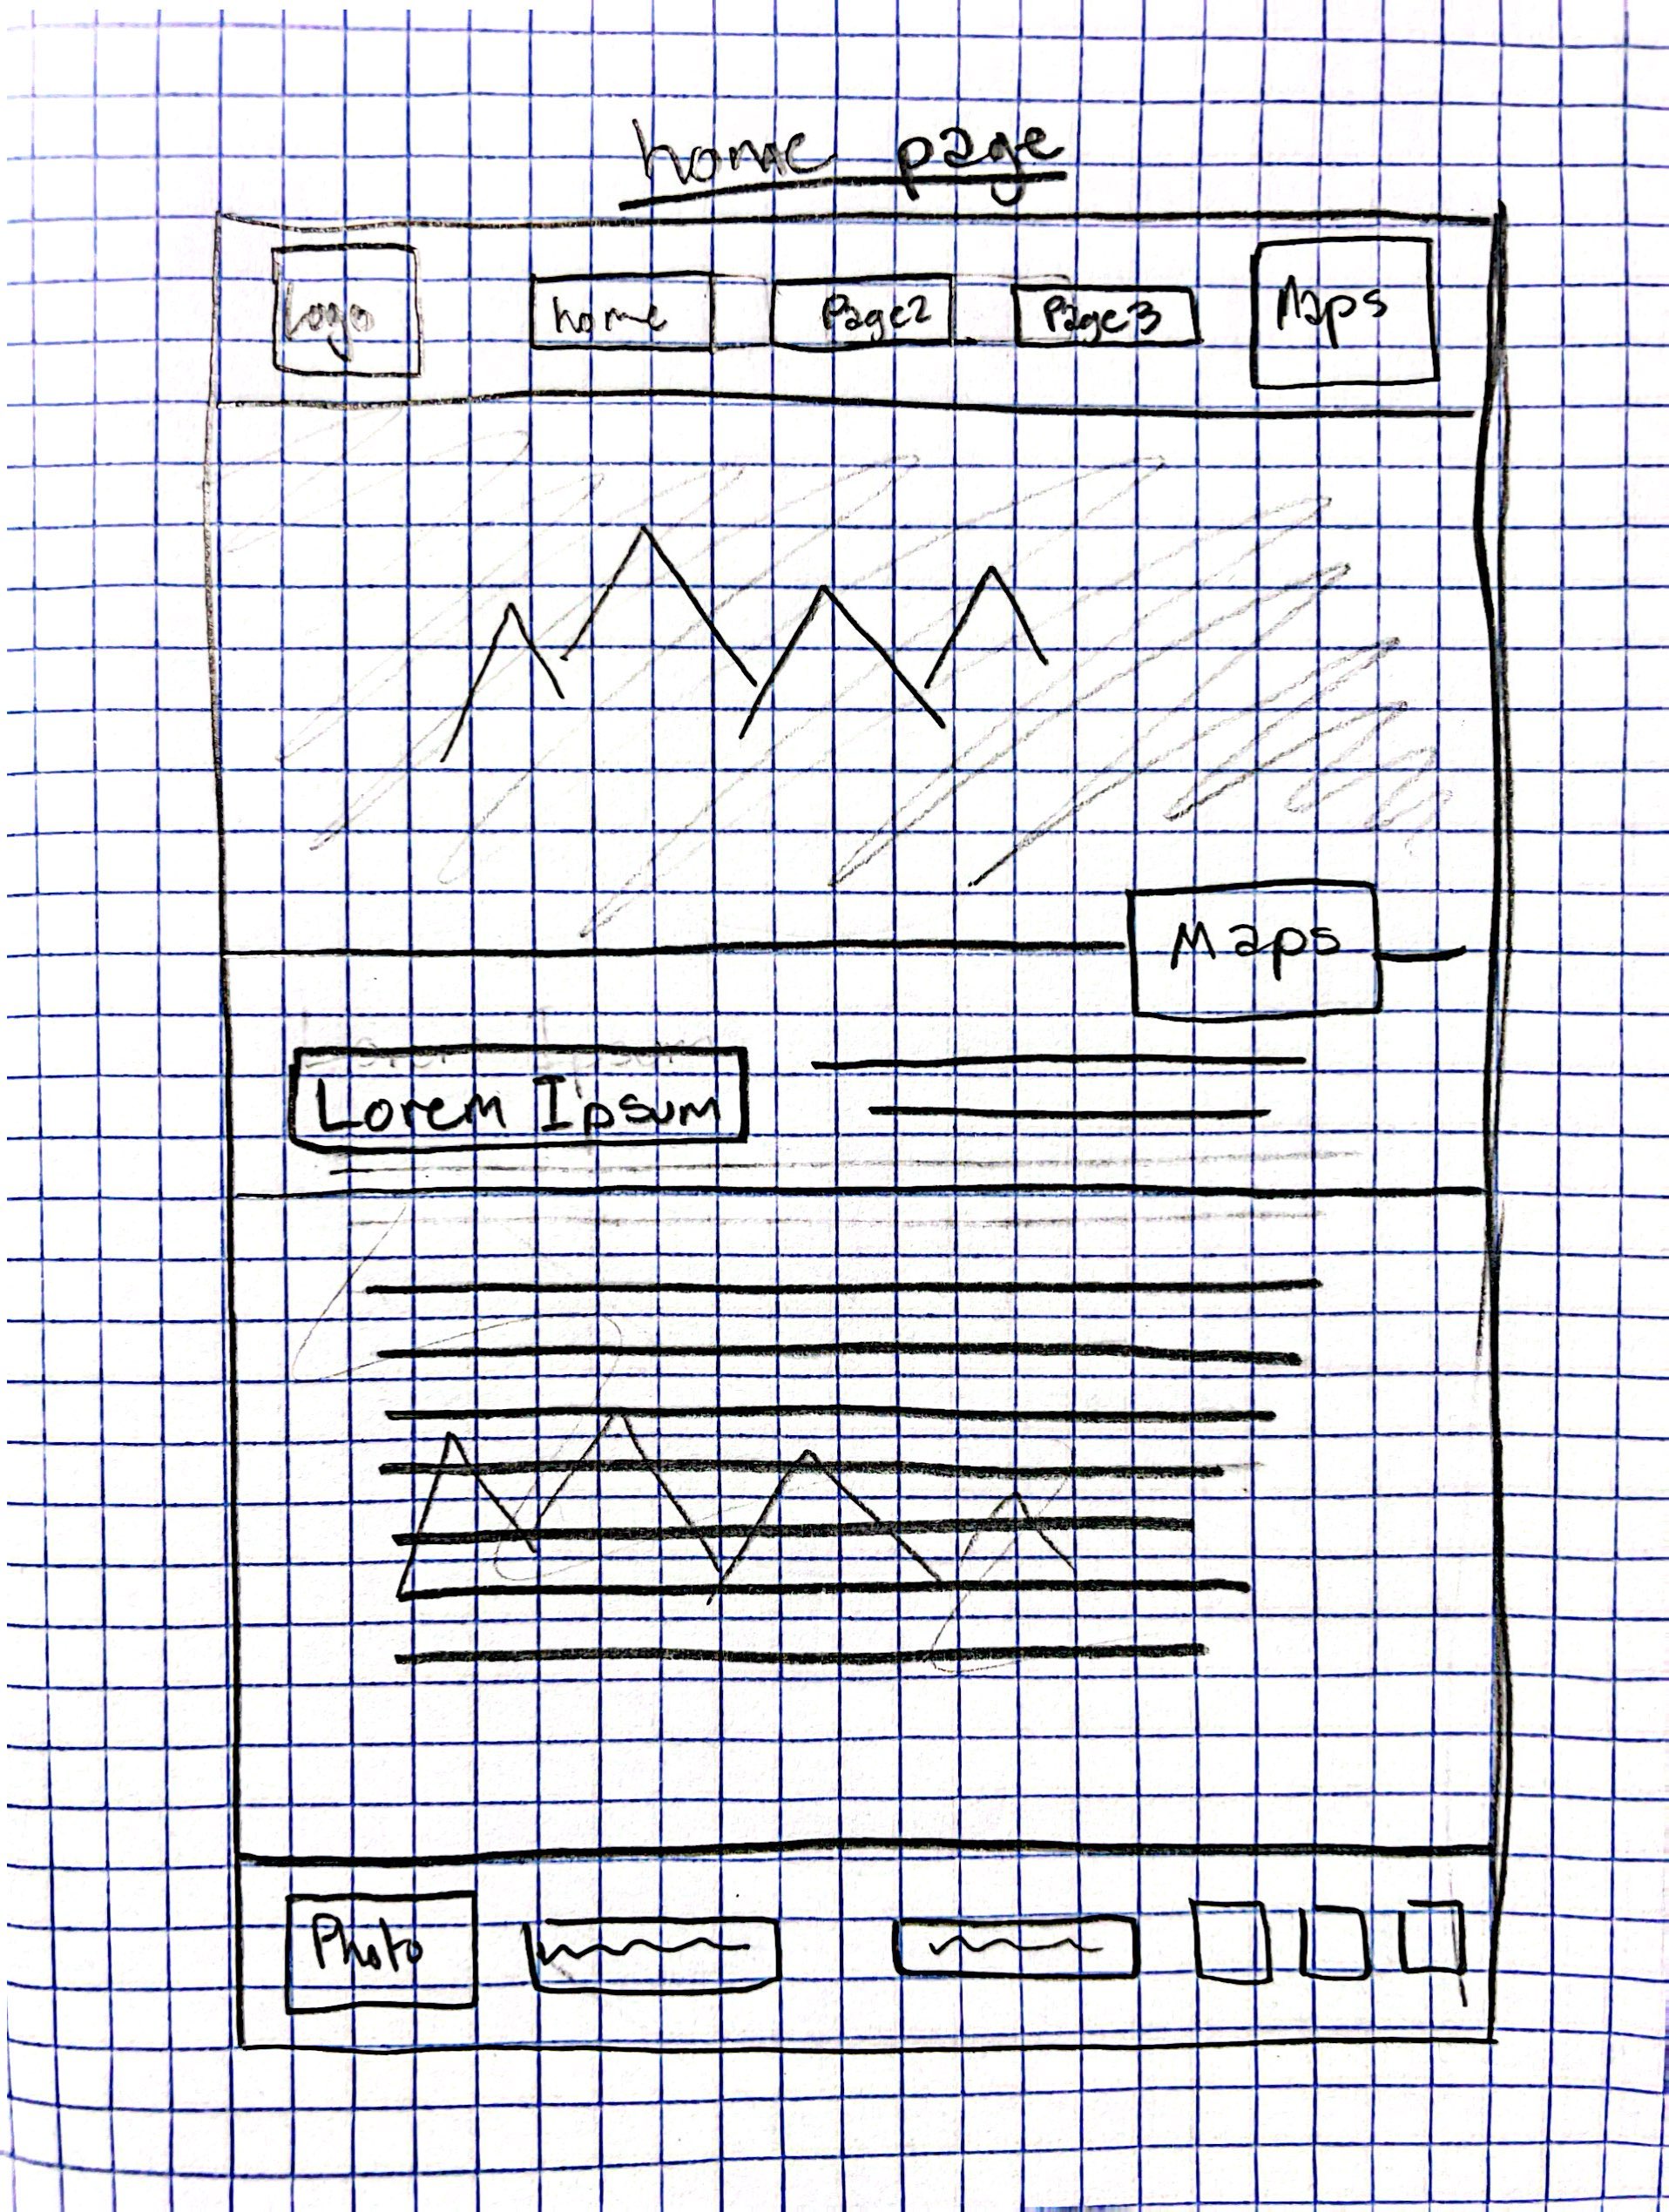 home page
Logo
home
Page2
Page3
Maps
Maps
Lorem Ipsum
Photo